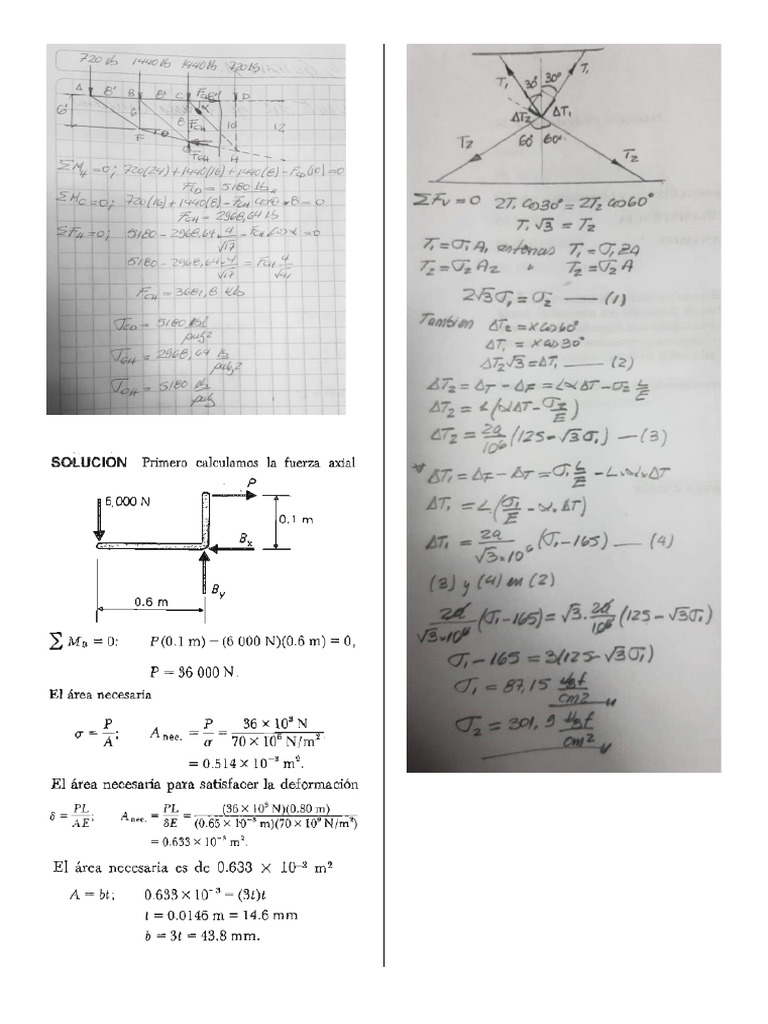 720 lb 1440 lb 1440 lb 720 lb
A 8' B 8' C F_CD 8' D
6' 6 θ F_CH α 10 12
F θ G F_GH H
ΣM_H=0; 720(24)+1440(16)+1440(8)-F_CD(10)=0
F_CD = 5180 lb
ΣM_C=0; 720(16)+1440(8)-F_GH cosθ*8=0
F_GH = 2968,64 lb
ΣF_H=0; 5180-2968,64·4/√17-F_CH cosα=0
5180-2968,64·4/√17 = F_CH 4/√41
F_CH = 3681,8 lb
σ_CD = 5180 lb/pulg²
σ_GH = 2968,64 lb/pulg²
σ_CH = 5180 lb/pulg
SOLUCION Primero calculamos la fuerza axial
6,000 N P
0.1 m
B_x
B_y
0.6 m
∑ M_B = 0: P(0.1 m) − (6 000 N)(0.6 m) = 0,
P = 36 000 N.
El área necesaria
σ = P/A; A_nec. = P/σ = 36 × 10³ N / 70 × 10⁶ N/m²
= 0.514 × 10⁻³ m².
El área necesaria para satisfacer la deformación
δ = PL/AE; A_nec. = PL/δE = (36 × 10³ N)(0.80 m) / (0.65 × 10⁻³ m)(70 × 10⁹ N/m²)
= 0.633 × 10⁻³ m².
El área necesaria es de 0.633 × 10⁻³ m²
A = bt; 0.633 × 10⁻³ = (3t)t
t = 0.0146 m = 14.6 mm
b = 3t = 43.8 mm.
T₁ 30° 30° T₁
ΔT₂ ΔT₁
T₂ 60° 60° T₂
ΣF_V=0 2T₁ cos30° = 2T₂ cos60°
T₁√3 = T₂
T₁=σ₁A₁ entonces T₁=σ₁2A
T₂=σ₂A₂ " T₂=σ₂A
2√3σ₁=σ₂ —— (1)
Tambien ΔT₂ = x cos60°
ΔT₁ = x cos30°
ΔT₂√3=ΔT₁ —— (2)
ΔT₂ = ΔT - ΔF = LαΔT-σ₂ L/E
ΔT₂ = L(αΔT-σ₂/E)
ΔT₂ = 2a/10⁶ (125-√3σ₁) —(3)
* ΔT₁ = ΔF - ΔT = σ₁L/E - L.α.ΔT
ΔT₁ = L(σ₁/E - α.ΔT)
ΔT₁ = 2a/√3×10⁶ (σ₁-165) — (4)
(3) y (4) en (2)
2a/√3×10⁶ (σ₁-165) = √3·2a/10⁶ (125-√3σ₁)
σ₁-165 = 3(125-√3σ₁)
σ₁ = 87,15 kgf/cm²
σ₂ = 301,9 kgf/cm²